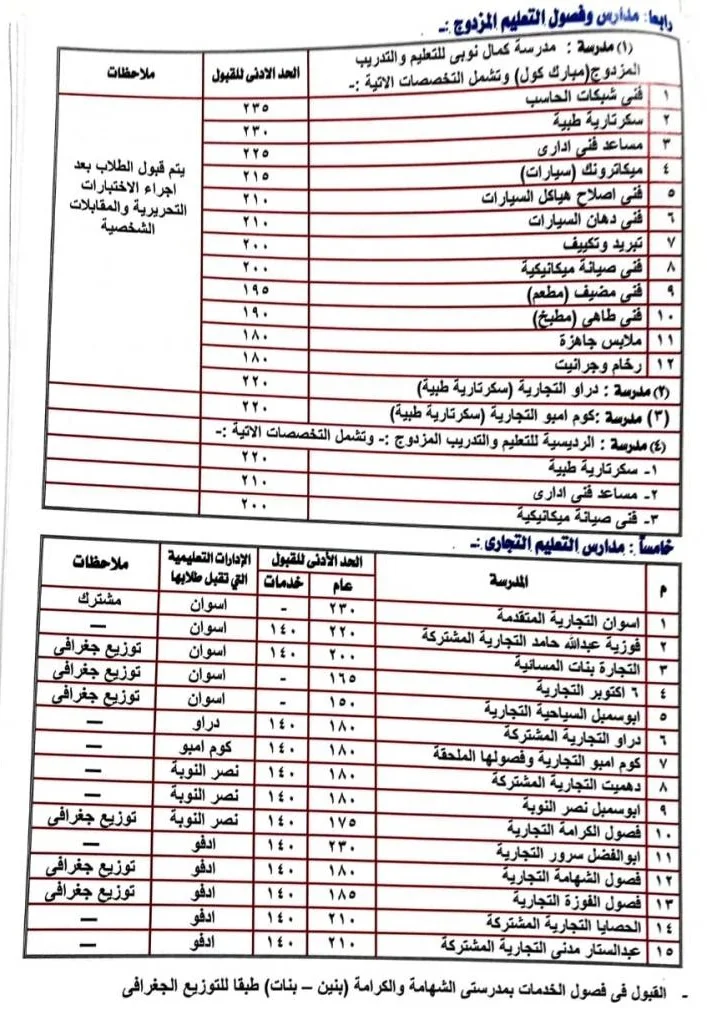 رابعا: مدارس وفصول التعليم المزدوج :-
(١) مدرسة : مدرسة كمال نوبى للتعليم والتدريب المزدوج(مبارك كول) وتشمل التخصصات الاتية :- | الحد الادنى للقبول | ملاحظات
١ فنى شبكات الحاسب ٢٣٥
٢ سكرتارية طبية ٢٣٠
٣ مساعد فنى ادارى ٢٢٥
٤ ميكاترونك (سيارات) ٢١٥
٥ فنى اصلاح هياكل السيارات ٢١٠
٦ فنى دهان السيارات ٢١٠
٧ تبريد وتكييف ٢٠٠
٨ فنى صيانة ميكانيكية ٢٠٠
٩ فنى مضيف (مطعم) ١٩٥
١٠ فنى طاهى (مطبخ) ١٩٠
١١ ملابس جاهزة ١٨٠
١٢ رخام وجرانيت ١٨٠
يتم قبول الطلاب بعد
اجراء الاختبارات
التحريرية والمقابلات
الشخصية
(٢) مدرسة : دراو التجارية (سكرتارية طبية) ٢٢٠
(٣) مدرسة :كوم امبو التجارية (سكرتارية طبية) ٢٢٠
(٤) مدرسة : الرديسية للتعليم والتدريب المزدوج :- وتشمل التخصصات الاتية :-
١- سكرتارية طبية ٢٢٠
٢- مساعد فنى ادارى ٢١٠
٣- فنى صيانة ميكانيكية ٢٠٠
خامساً : مدارس التعليم التجارى :-
م | المدرسة | الحد الأدنى للقبول | الإدارات التعليمية التي تقبل طلابها | ملاحظات
عام | خدمات
١ اسوان التجارية المتقدمة ٢٣٠ - اسوان مشترك
٢ فوزية عبدالله حامد التجارية المشتركة ٢٢٠ ١٤٠ اسوان —
٣ التجارة بنات المسائية ٢٠٠ ١٤٠ اسوان توزيع جغرافى
٤ ٦ اكتوبر التجارية ١٦٥ - اسوان توزيع جغرافى
٥ ابوسمبل السياحية التجارية ١٥٠ - اسوان توزيع جغرافى
٦ دراو التجارية المشتركة ١٨٠ ١٤٠ دراو —
٧ كوم امبو التجارية وفصولها الملحقة ١٨٠ ١٤٠ كوم امبو —
٨ دهميت التجارية المشتركة ١٨٠ ١٤٠ نصر النوبة —
٩ ابوسمبل نصر النوبة ١٨٠ ١٤٠ نصر النوبة —
١٠ فصول الكرامة التجارية ١٧٥ ١٤٠ نصر النوبة توزيع جغرافى
١١ ابوالفضل سرور التجارية ٢٣٠ ١٤٠ ادفو —
١٢ فصول الشهامة التجارية ١٨٠ ١٤٠ ادفو توزيع جغرافى
١٣ فصول الفوزة التجارية ١٨٥ ١٤٠ ادفو توزيع جغرافى
١٤ الحصايا التجارية المشتركة ٢١٠ ١٤٠ ادفو —
١٥ عبدالستار مدنى التجارية المشتركة ٢١٠ ١٤٠ ادفو —
- القبول فى فصول الخدمات بمدرستى الشهامة والكرامة (بنين – بنات) طبقا للتوزيع الجغرافى